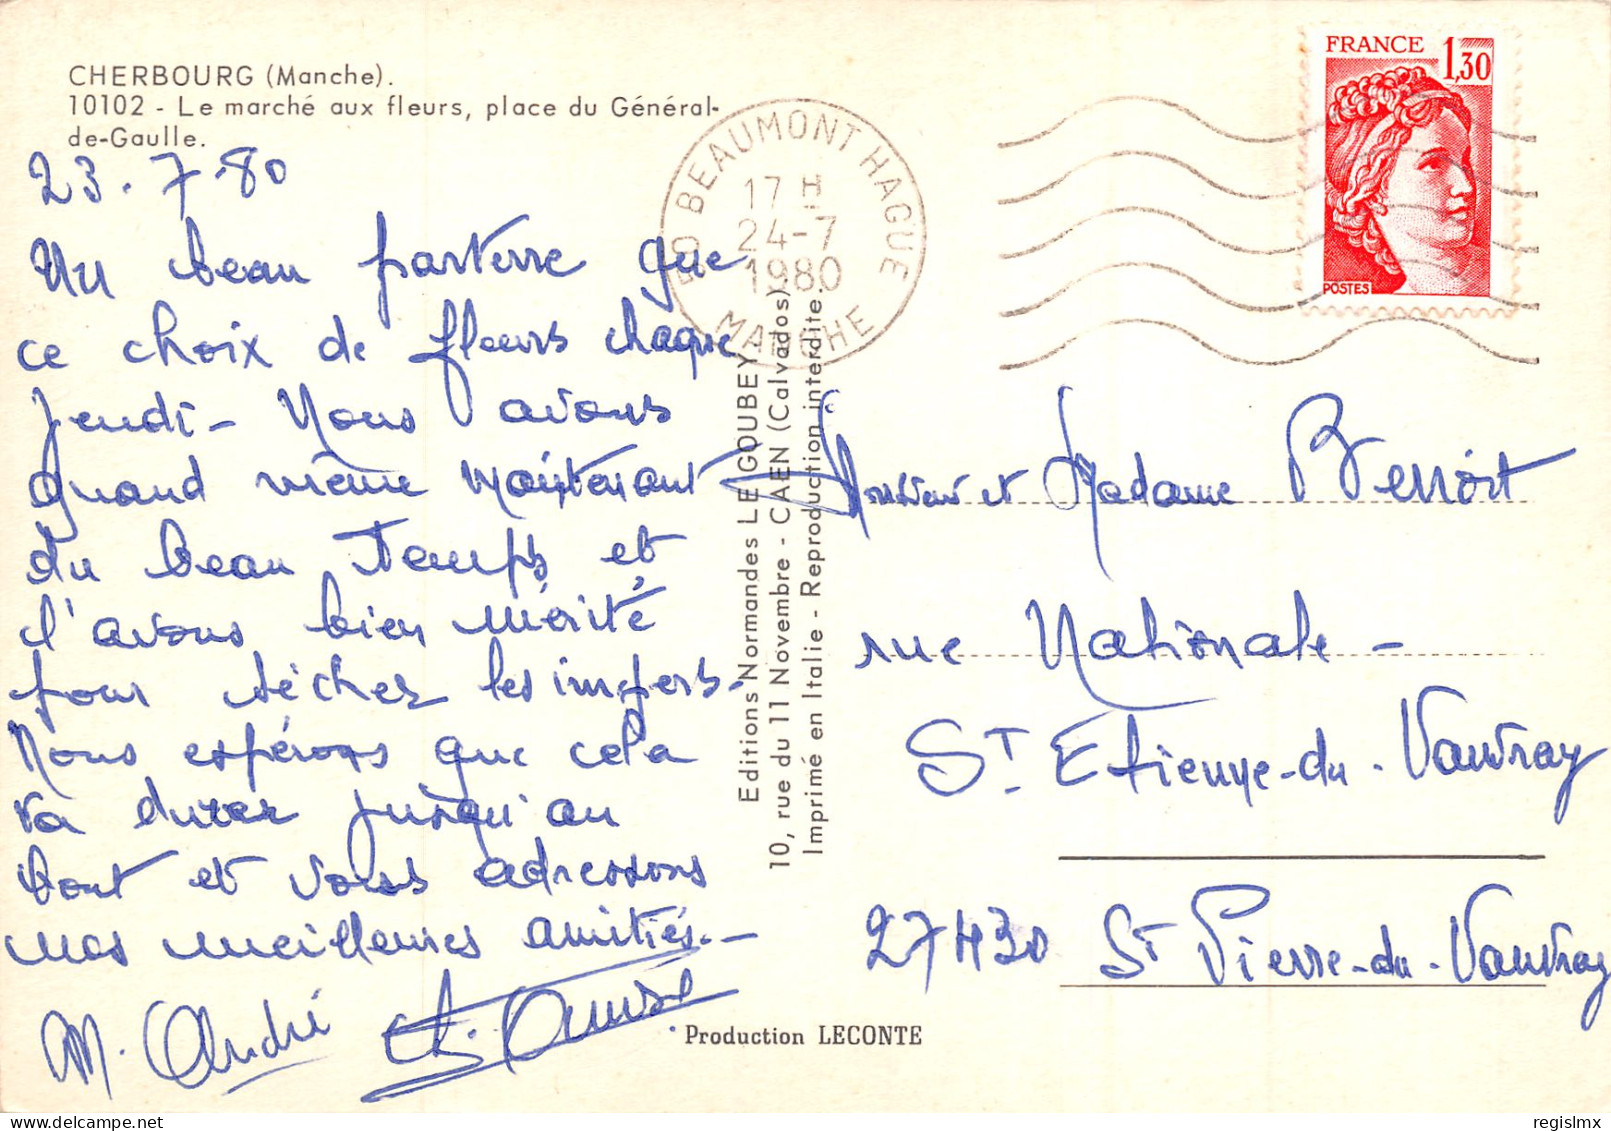 CHERBOURG (Manche).
10102 - Le marché aux fleurs, place du Général-
de-Gaulle.
23.7.80
Un beau parterre que
ce choix de fleurs chaque
jeudi - Nous avons
quand même maintenant
du beau temps et
l'avons bien mérité
pour sécher les impers.
Nous espérons que cela
va durer jusqu'au
bout et vous adressons
nos meilleures amitiés. -
M. André
BEAUMONT HAGUE
17 H
24-7
1980
MANCHE
FRANCE 1,30
POSTES
Editions Normandes LE GOUBEY
10, rue du 11 Novembre - CAEN (Calvados)
Imprimé en Italie - Reproduction interdite.
Monsieur et Madame Benoît
rue Nationale -
St Etienne-du-Vauvray
27430 St Pierre-du-Vauvray
Production LECONTE
regislmx